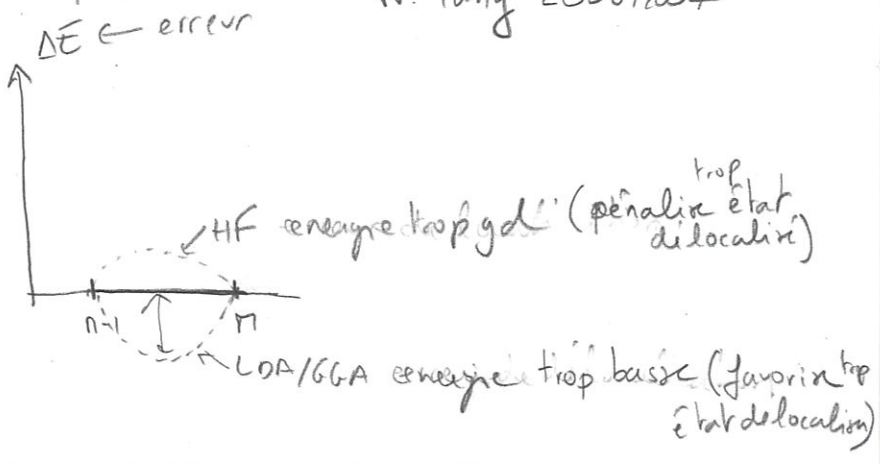 ΔE ← erreur
trop
HF energie trop gd (pénalise état
délocalisé)
n-1 n
LDA/GGA energie trop basse (favorise trop
état délocalisé)